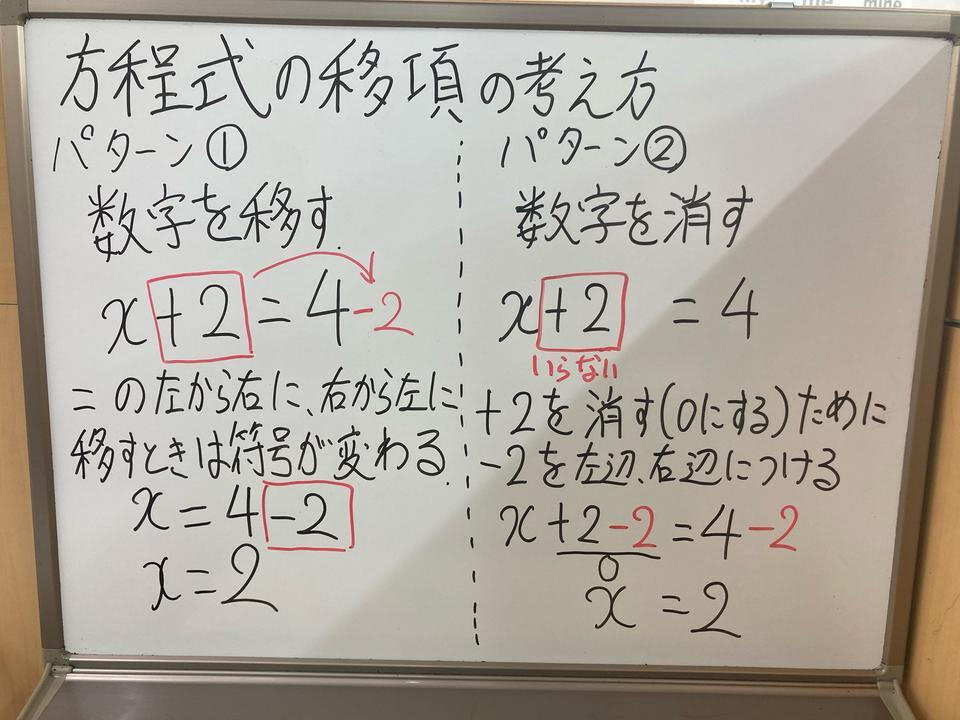 方程式の移項の考え方
パターン①
数字を移す.
x+2=4-2
=の左から右に、右から左に
移すときは符号が変わる.
x=4-2
x=2
パターン②
数字を消す
x+2 =4
いらない
+2を消す(0にする)ために
-2を左辺、右辺につける
x+2-2=4-2
0
x=2
mine